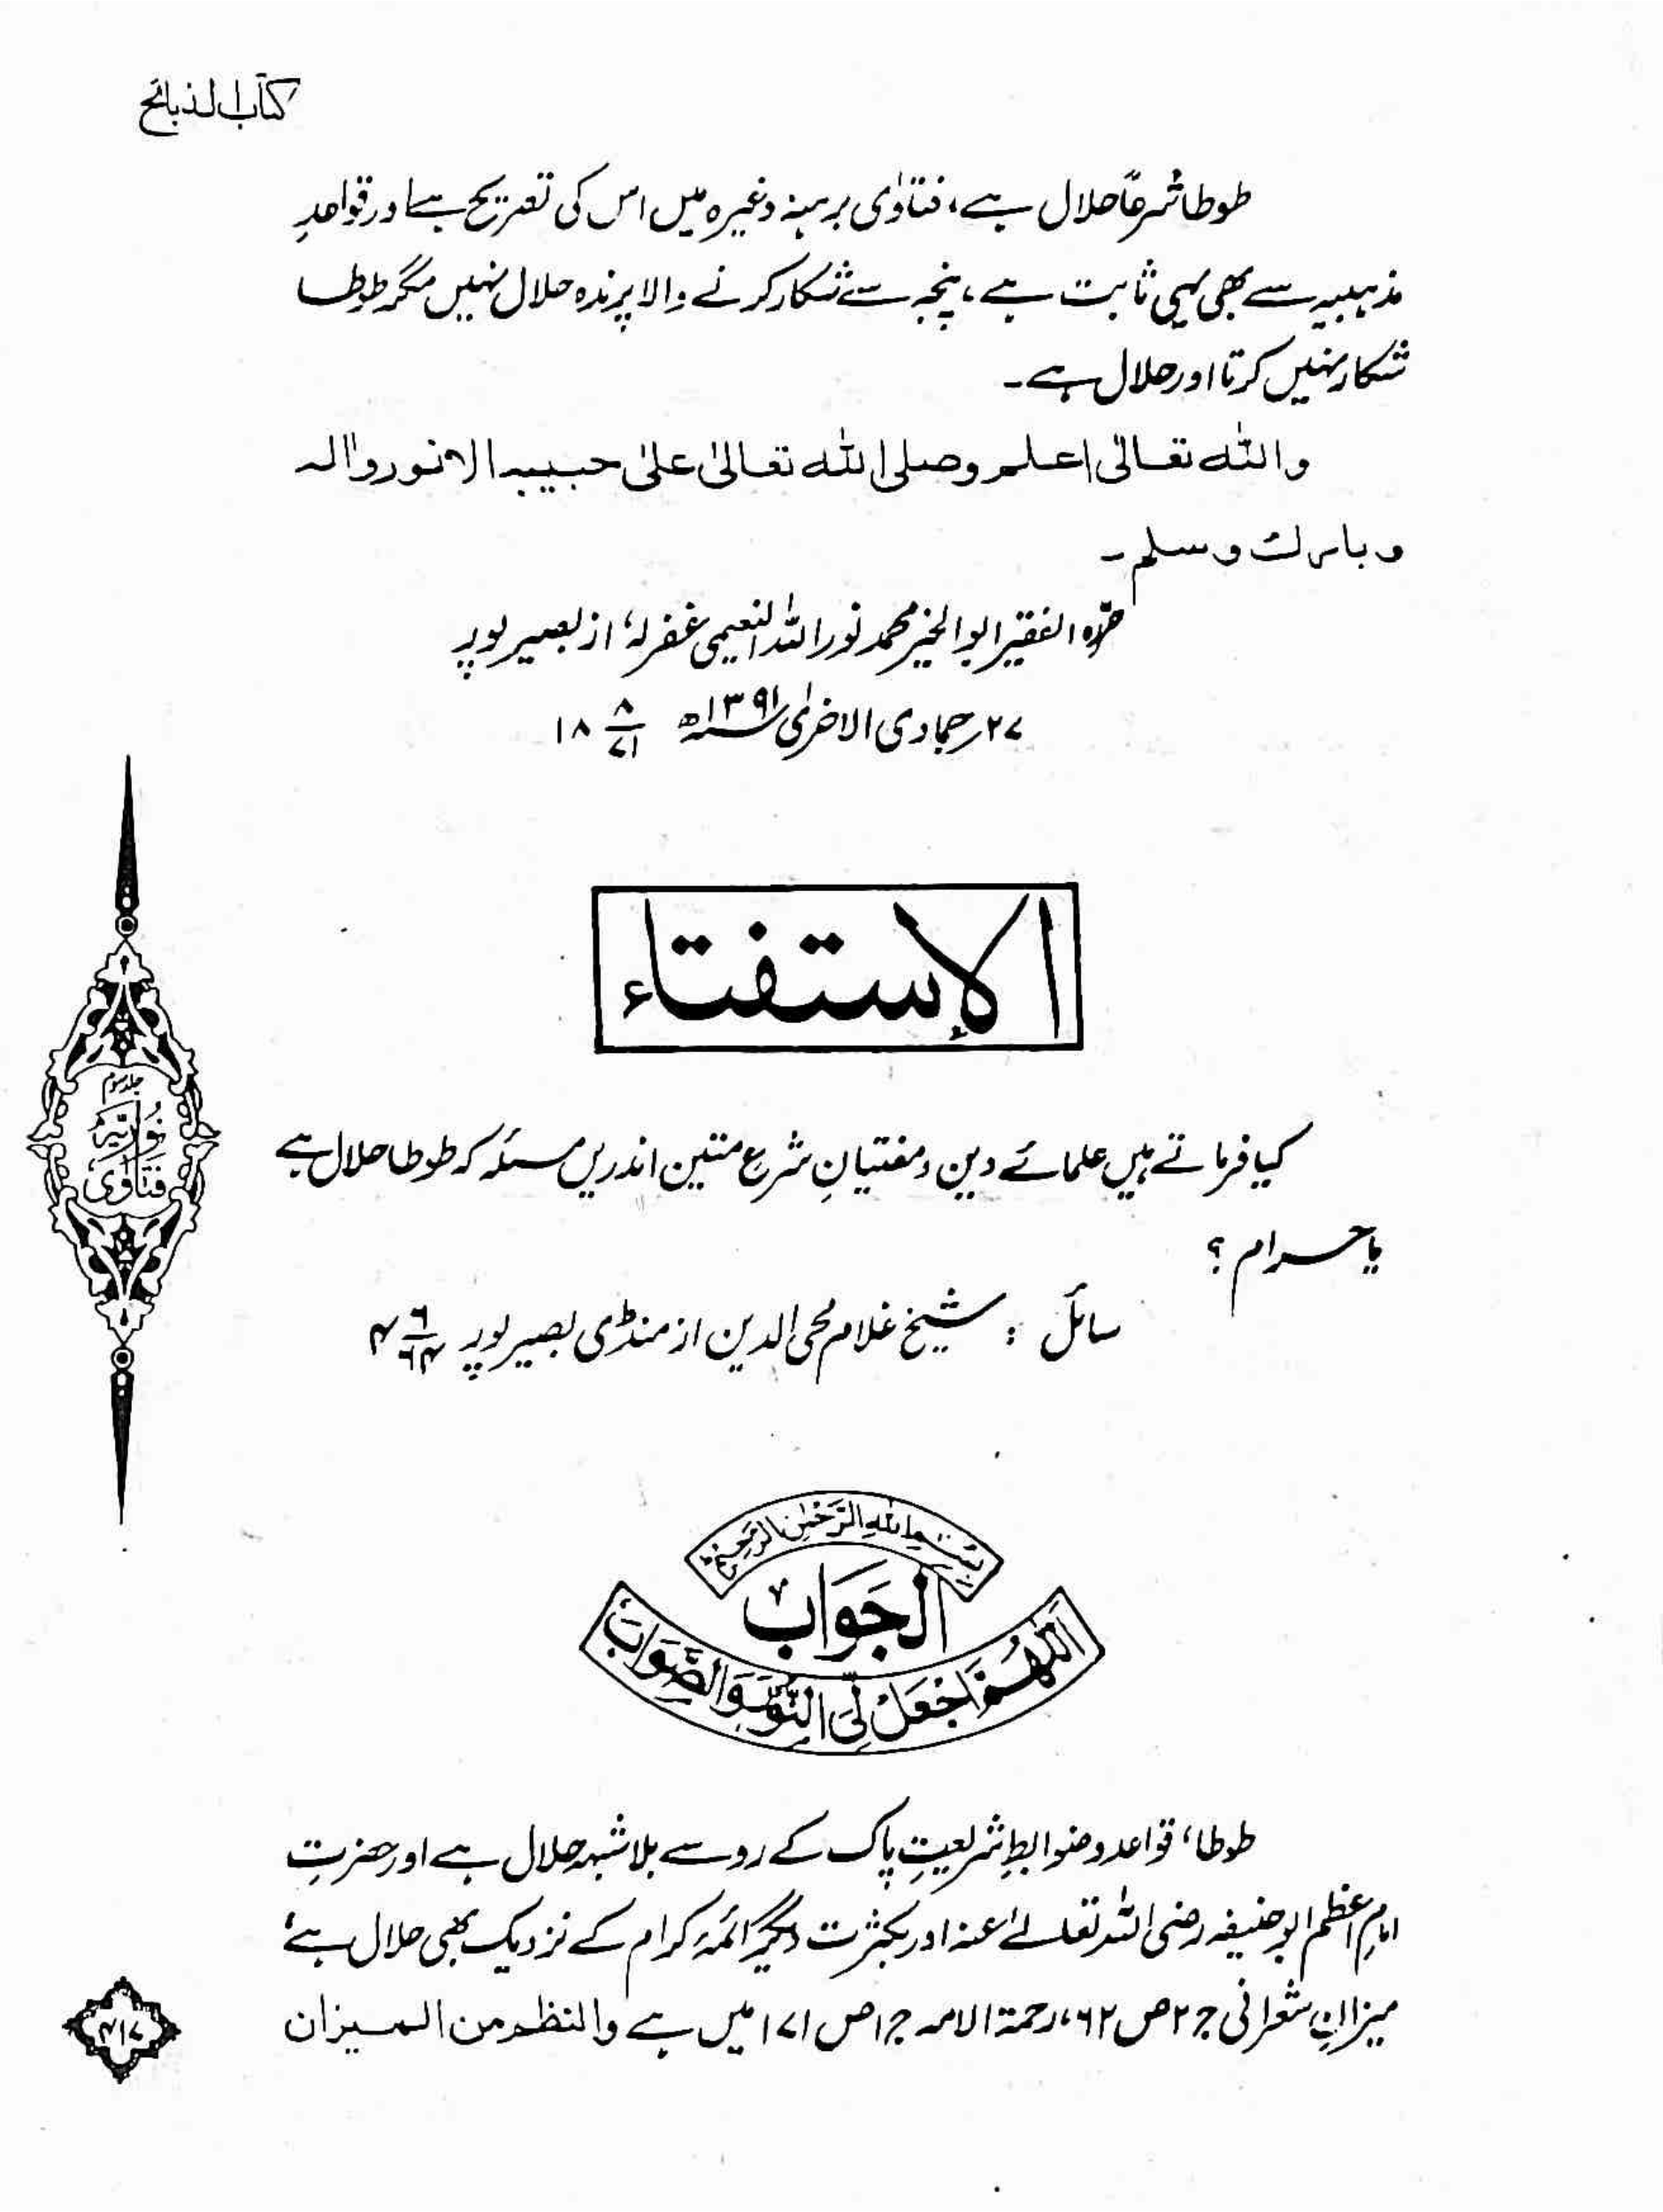 کتاب الذبائح
طوطا شرعاً حلال ہے، فتاوٰی برہنہ وغیرہ میں اس کی تصریح ہے اور قواعدِ
مذہبیہ سے بھی یہی ثابت ہے، پنجہ سے شکار کرنے والا پرندہ حلال نہیں مگر طوطا
شکار نہیں کرتا اور حلال ہے۔
واللہ تعالیٰ اعلم وصلی اللہ تعالیٰ علیٰ حبیبہ الانور واٰلہ
وبارك وسلم۔
حرّرہ الفقیر ابوالخیر محمد نور اللہ النعیمی غفرلہٗ از بصیر پور
۲۷ر جمادی الاخریٰ سنہ ۱۳۹۱ھ ۸/۷۱ ۱۸
الإستفتاء
کیا فرماتے ہیں علمائے دین ومفتیانِ شرع متین اندریں مسئلہ کہ طوطا حلال ہے
یا حرام ؟
سائل : شیخ غلام محی الدین از منڈی بصیر پور ۶/۶۴ ۴
جلد سوم
نُوریّہ
فتاوٰی
بِسْمِ اللہِ الرَّحْمٰنِ الرَّحِیْمِ
الجَوَاب
اَللّٰھُمَّ اجْعَلْ لِیَ النُّوْرَ وَالصَّوَابَ
طوطا، قواعد وضوابطِ شریعتِ پاک کے رو سے بلاشبہہ حلال ہے اور حضرتِ
امامِ اعظم ابوحنیفہ رضی اللہ تعالےٰ عنہ اور بکثرت دیگر ائمہ کرام کے نزدیک بھی حلال ہے،
میزانِ شعرانی ج ۲ ص ۶۲، رحمۃ الامہ ج ۱ ص ۱۷۱ میں ہے والنظم من المیزان
۴۱۷